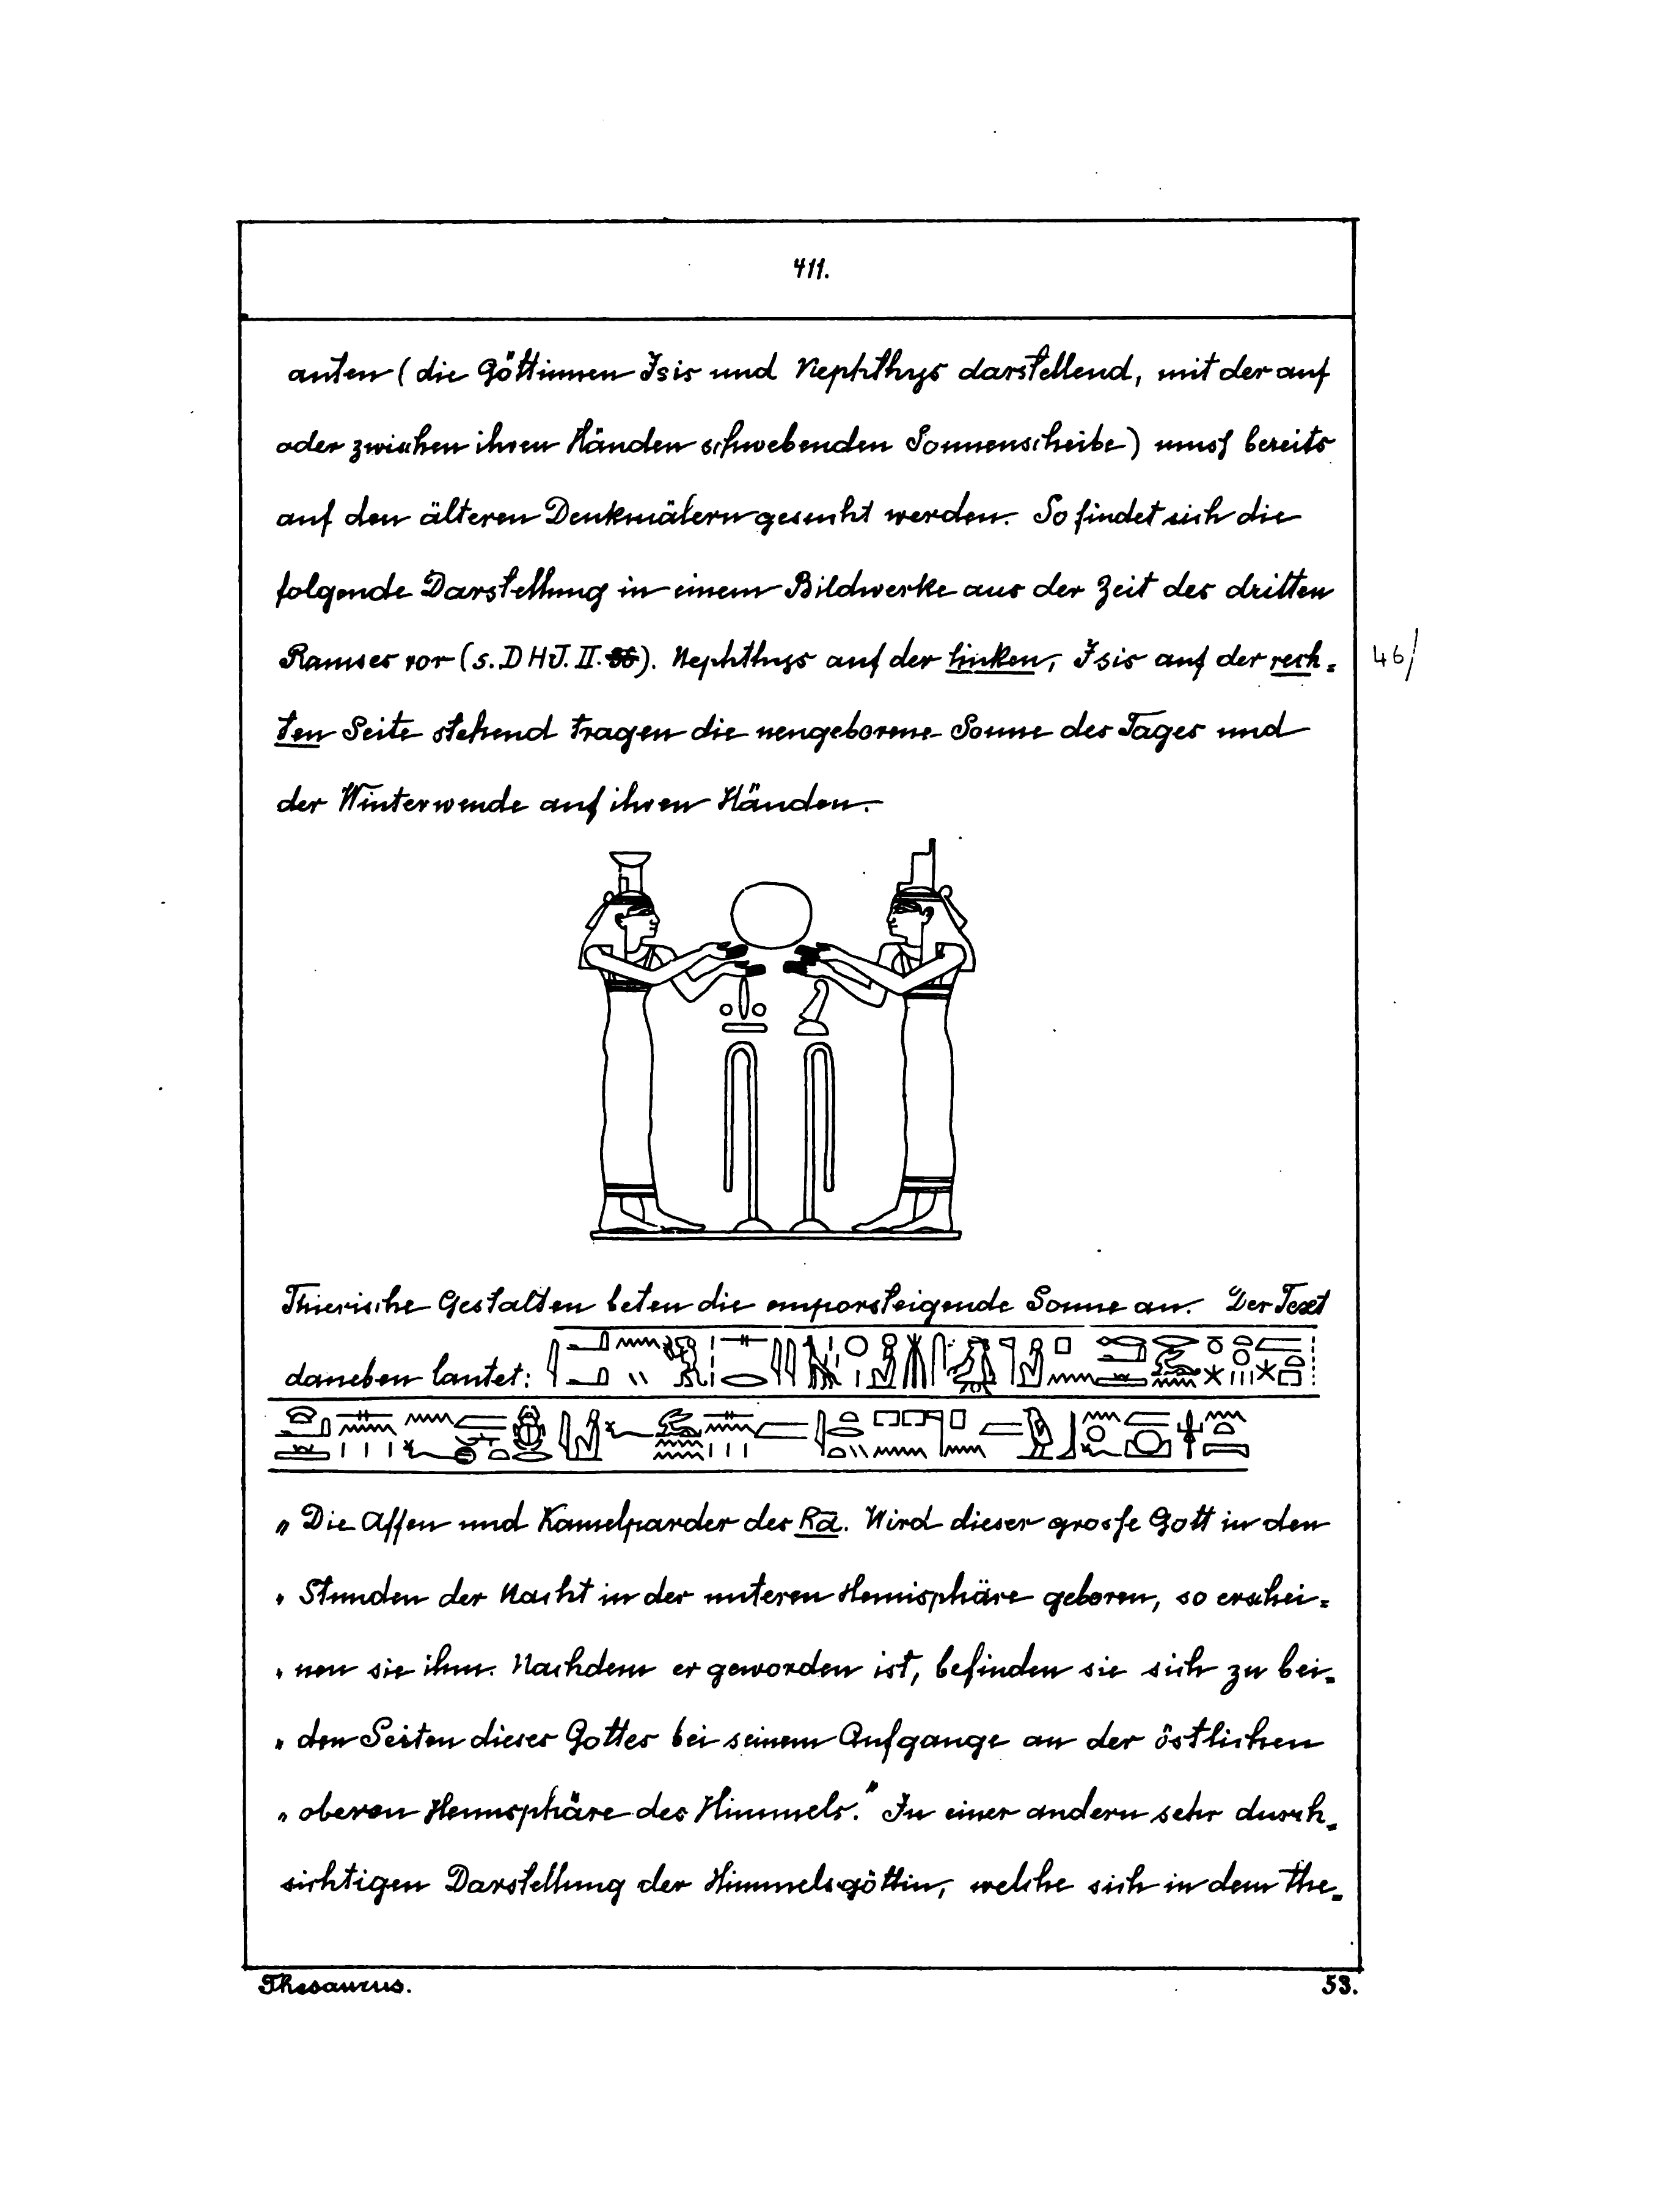 411.
anten (die Göttinnen Isis und Nephthys darstellend, mit der auf
oder zwischen ihren Händen schwebenden Sonnenscheibe) muss bereits
auf den älteren Denkmälern gesucht werden. So findet sich die
folgende Darstellung in einem Bildwerke aus der Zeit des dritten
Ramses vor (s. D H J. II. ). Nephthys auf der linken, Isis auf der rech-
46/
ten Seite stehend tragen die neugeborene Sonne des Tages und
der Winterwende auf ihren Händen.
Thierische Gestalten beten die emporsteigende Sonne an. Der Text
daneben lautet:
„Die Affen und Kamelparder des Rā. Wird dieser grosse Gott in den
„Stunden der Nacht in der unteren Hemisphäre geboren, so erschei-
„nen sie ihm. Nachdem er geworden ist, befinden sie sich zu bei-
„den Seiten dieses Gottes bei seinem Aufgange an der östlichen
„oberen Hemisphäre des Himmels." In einer andern sehr durch-
sichtigen Darstellung der Himmelsgöttin, welche sich in dem the-
Thesaurus.
53.